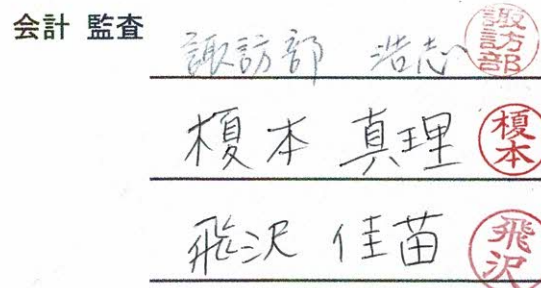 会計 監査
諏訪部 浩志 諏訪部
榎本 真理 榎本
飛沢 佳苗 飛沢